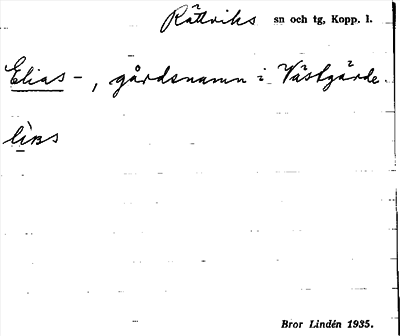 Rättviks sn och tg, Kopp. l.
Elias-, gårdsnamn i Västgärde.
Bror Lindén 1935.